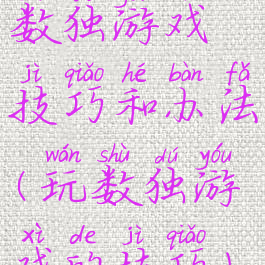 数独游戏
jì qiǎo hé bàn fǎ
技巧和办法
wán shù dú yóu
(玩数独游
xì de jì qiǎo
戏的技巧)